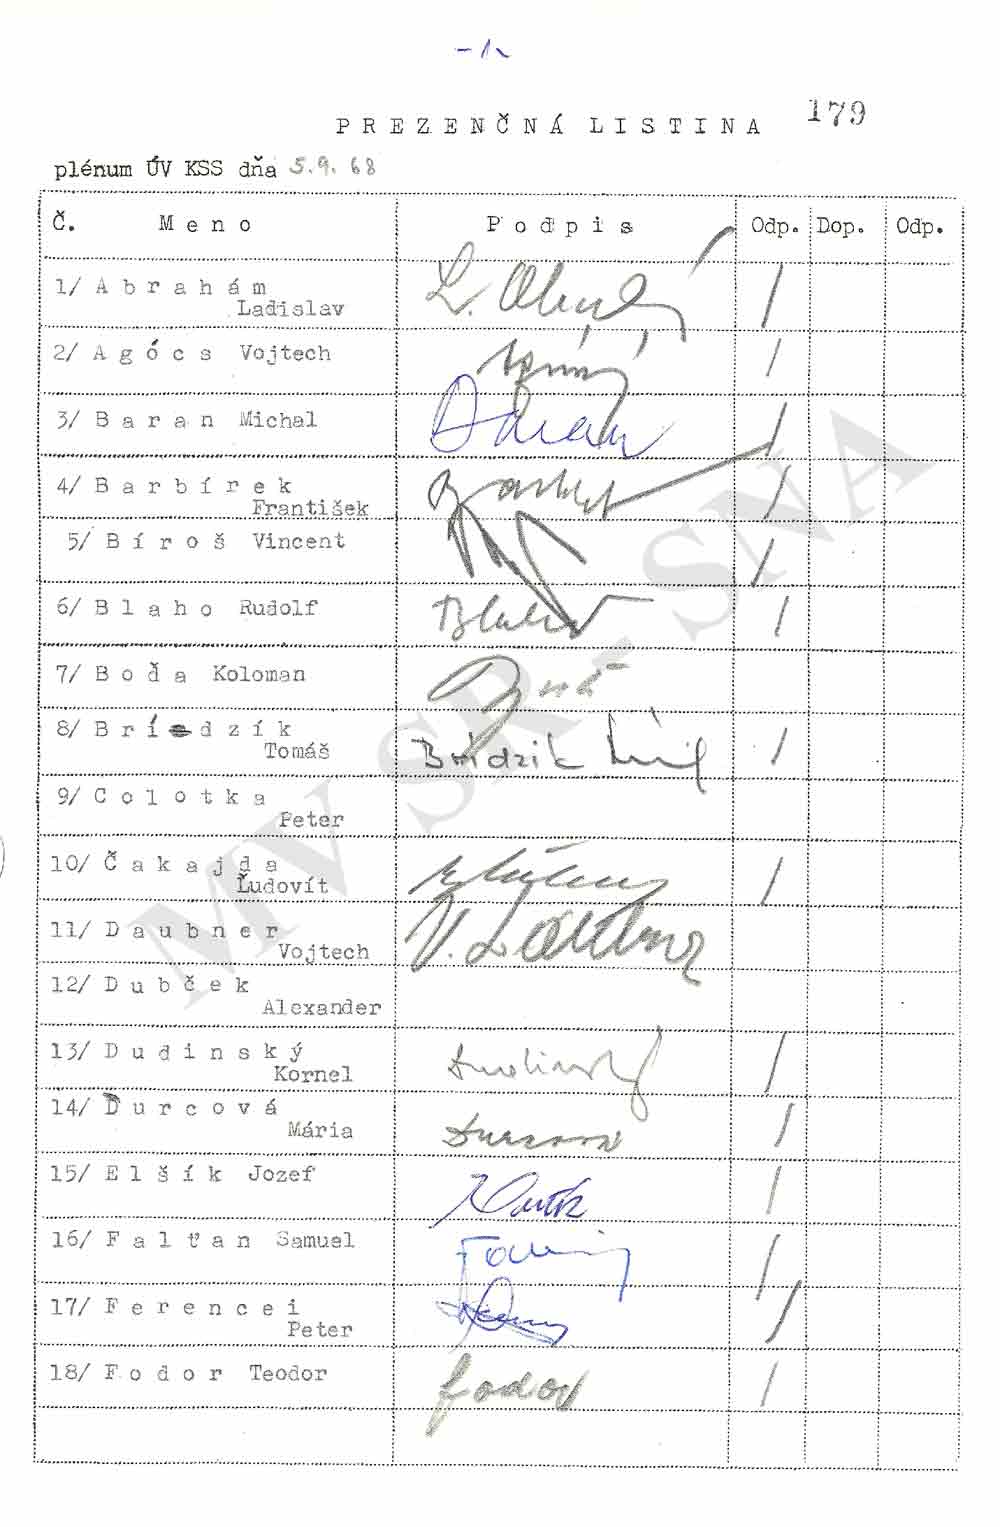 -1-
179
PREZENČNÁ LISTINA
plénum ÚV KSS dňa 5.9.68
Č. Meno Podpis Odp. Dop. Odp.
1/ Abrahám
Ladislav
2/ Agócs Vojtech
3/ Baran Michal
Baran
4/ Barbírek
František
5/ Bíroš Vincent
6/ Blaho Rudolf
Blaho
7/ Boďa Koloman
8/ Brídzík
Tomáš
Brídzik
9/ Colotka
Peter
10/ Čakajda
Ľudovít
11/ Daubner
Vojtech
V. Daubner
12/ Dubček
Alexander
13/ Dudinský
Kornel
Dudinský
14/ Ďurcová
Mária
Durcová
15/ Elšík Jozef
16/ Falťan Samuel
17/ Ferencei
Peter
18/ Fodor Teodor
Fodor
MV SR - SNA